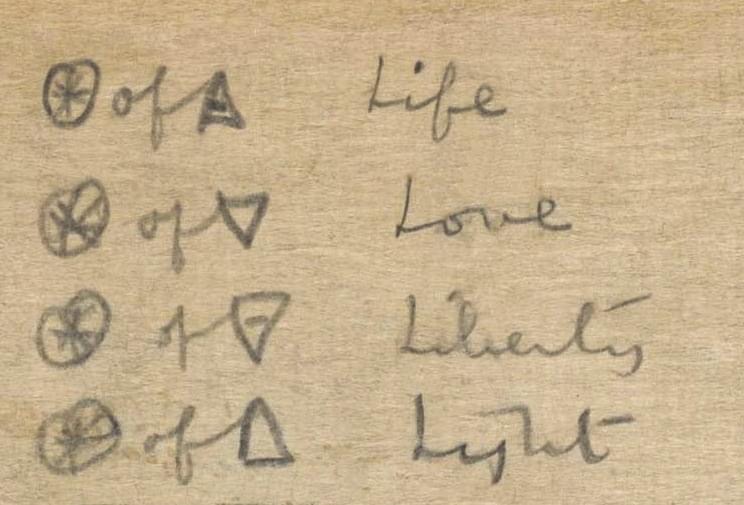 ⊛ of 🜁 Life
⊛ of ▽ Love
⊛ of 🜃 Liberty
⊛ of △ Light